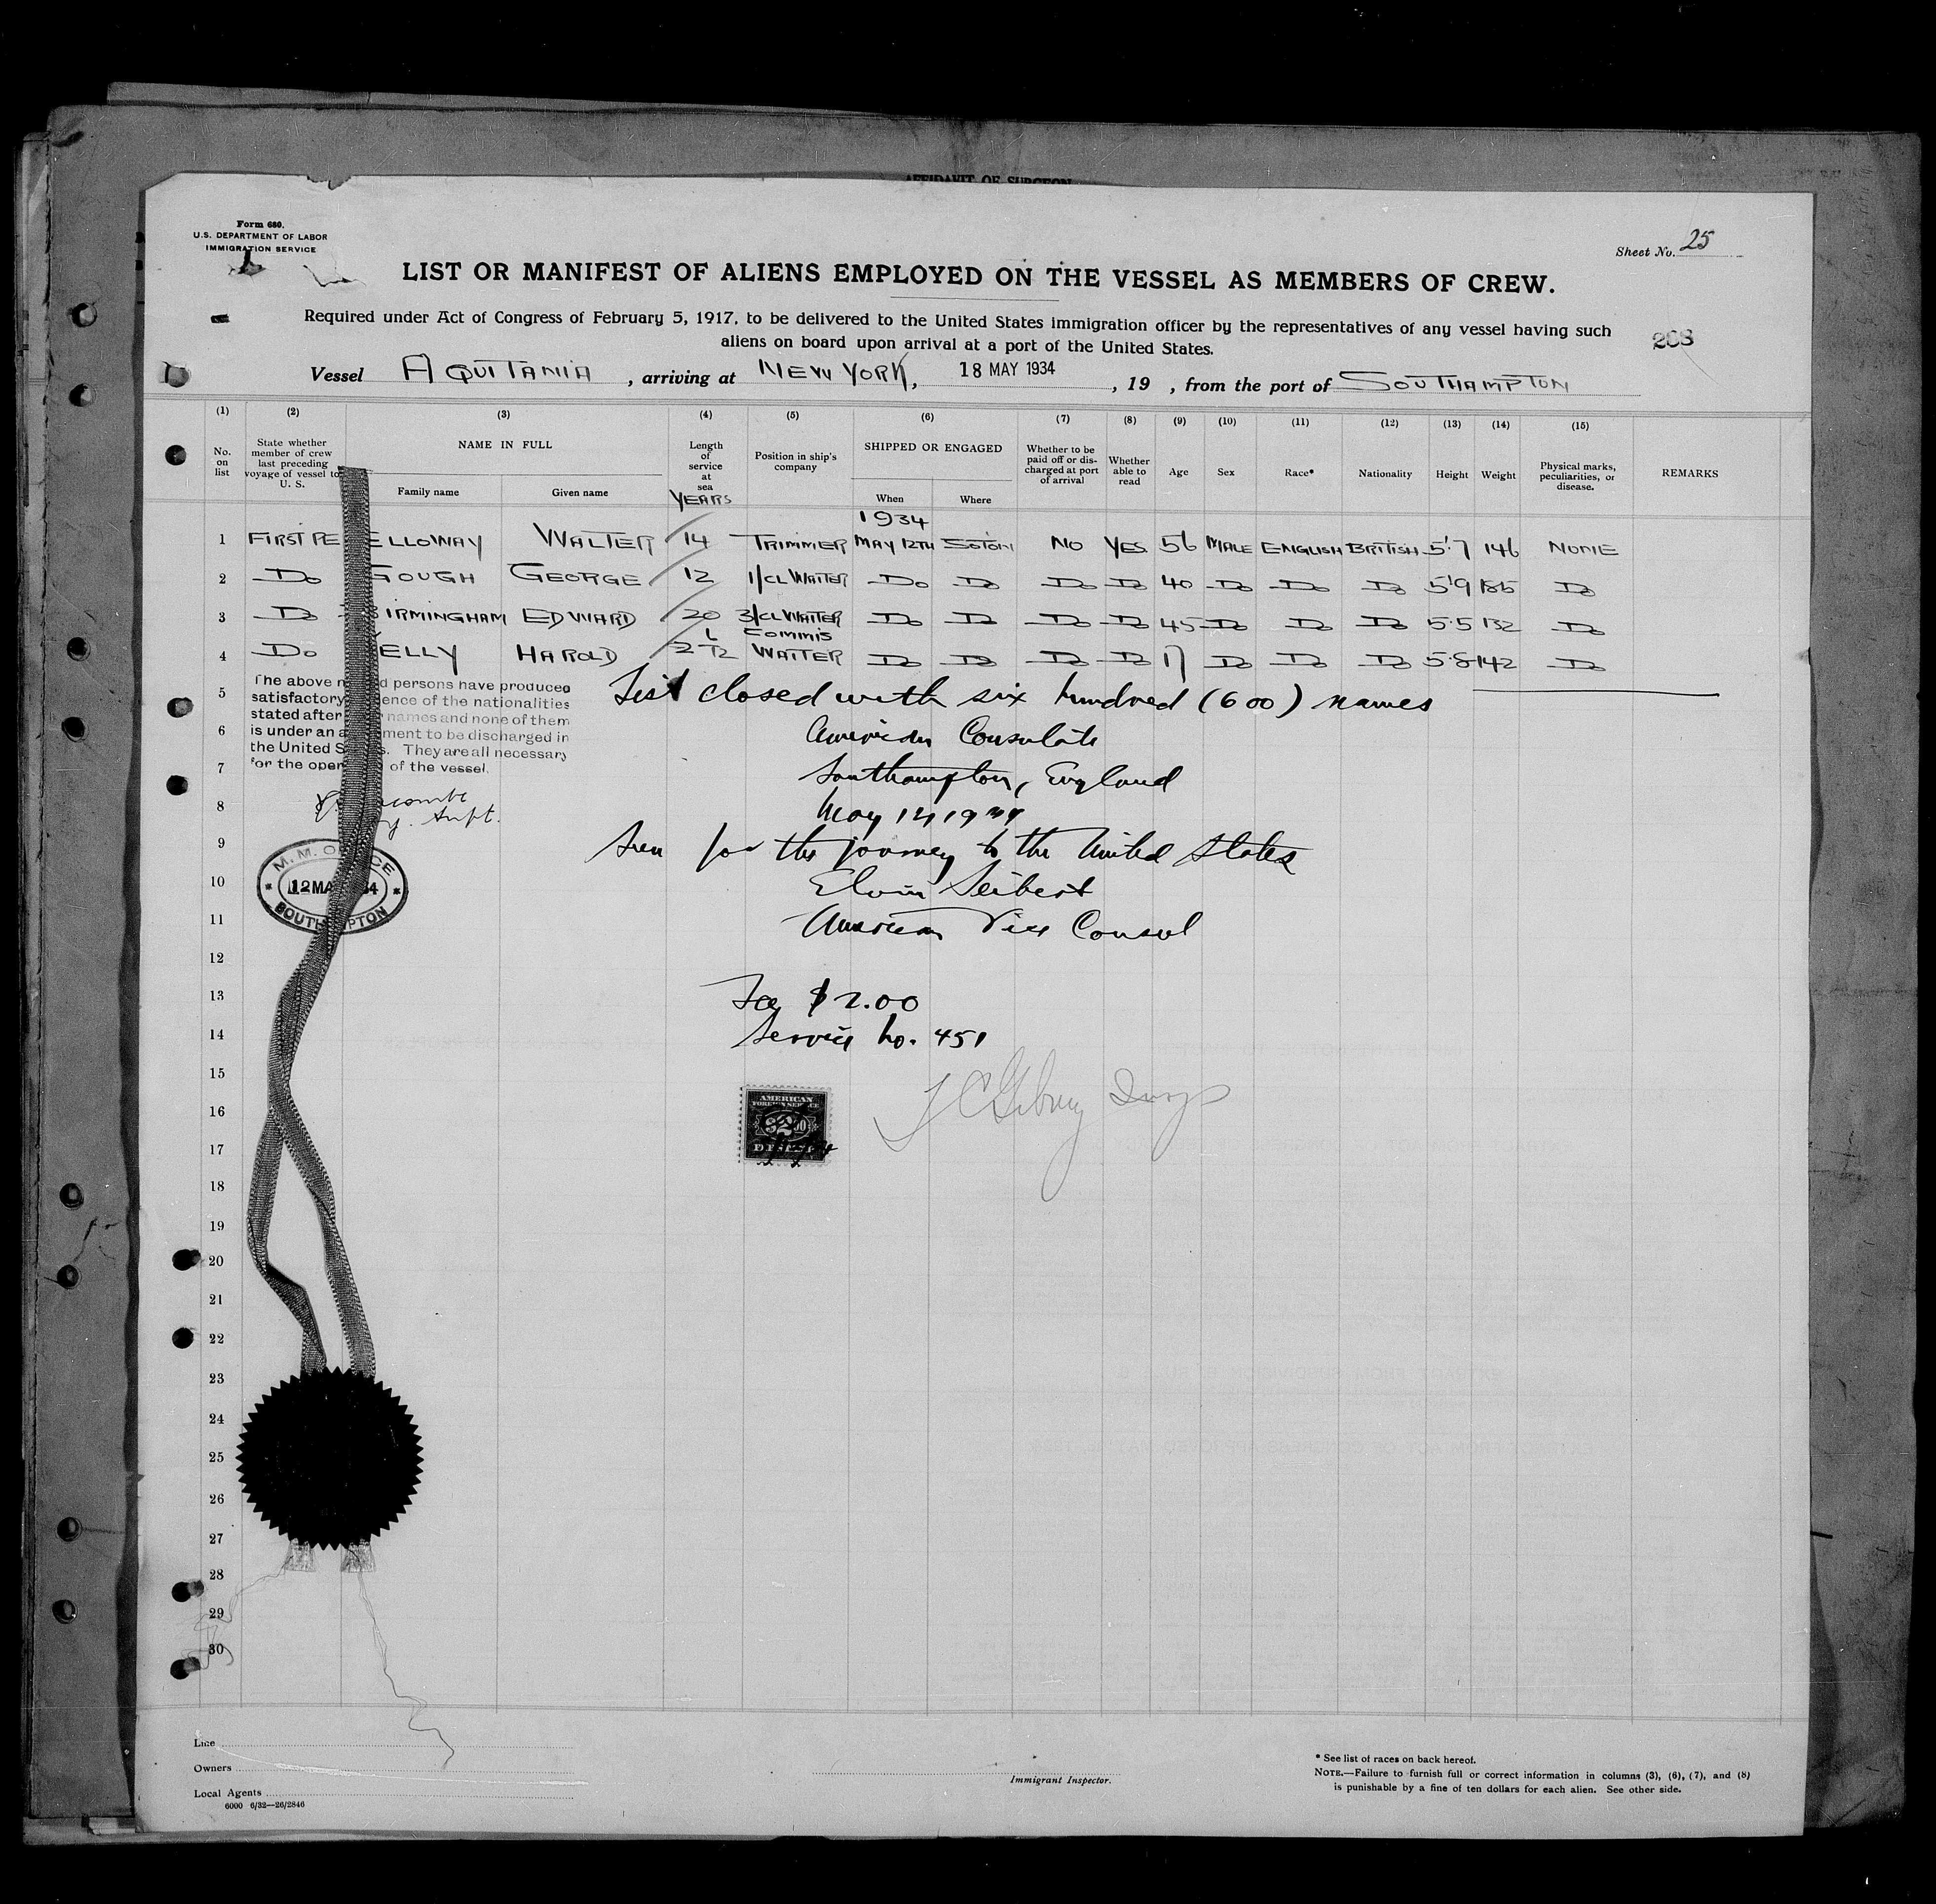 AFFIDAVIT OF SURGEON
Form 680.
U.S. DEPARTMENT OF LABOR
IMMIGRATION SERVICE
Sheet No. 25
LIST OR MANIFEST OF ALIENS EMPLOYED ON THE VESSEL AS MEMBERS OF CREW.
Required under Act of Congress of February 5, 1917, to be delivered to the United States immigration officer by the representatives of any vessel having such
aliens on board upon arrival at a port of the United States.
268
Vessel AQUITANIA, arriving at NEW YORK, 18 MAY 1934, 19 , from the port of SOUTHAMPTON
(1) (2) (3) (4) (5) (6) (7) (8) (9) (10) (11) (12) (13) (14) (15)
No. on list
State whether member of crew last preceding voyage of vessel to U. S.
NAME IN FULL
Family name
Given name
Length of service at sea
YEARS
Position in ship's company
SHIPPED OR ENGAGED
When
Where
Whether to be paid off or discharged at port of arrival
Whether able to read
Age
Sex
Race*
Nationality
Height
Weight
Physical marks, peculiarities, or disease.
REMARKS
1934
1 FIRST PE ELLOWAY WALTER 14 TRIMMER MAY 12TH SOTON NO YES 56 MALE ENGLISH BRITISH 5'7 146 NONE
2 Do GOUGH GEORGE 12 1/CL WAITER Do Do Do Do 40 Do Do Do 5'9 Do
3 Do BIRMINGHAM EDWARD 20 3/CL WAITER Do Do Do Do 45 Do Do Do 5.5 132 Do
4 Do ELLY HAROLD COMMIS WAITER Do Do Do Do 17 Do Do Do 5.8 142 Do
The above n d persons have produced
satisfactory ence of the nationalities
stated after names and none of them
is under an a ment to be discharged in
the United S s. They are all necessary
for the oper of the vessel.
Supt.
M. M. OFFICE
12 MA 34
SOUTHAMPTON
List closed with six hundred (600) names
American Consulate
Southampton, England
May 12, 1934
Seen for the journey to the United States
Elvin Seibert
American Vice Consul
Fee $2.00
Service No. 451
AMERICAN
FOREIGN SERVICE
5
6
7
8
9
10
11
12
13
14
15
16
17
18
19
20
21
22
23
24
25
26
27
28
29
30
Line
Owners
Local Agents
6000 6/32—26/2846
Immigrant Inspector.
* See list of races on back hereof.
NOTE.—Failure to furnish full or correct information in columns (3), (6), (7), and (8)
is punishable by a fine of ten dollars for each alien. See other side.